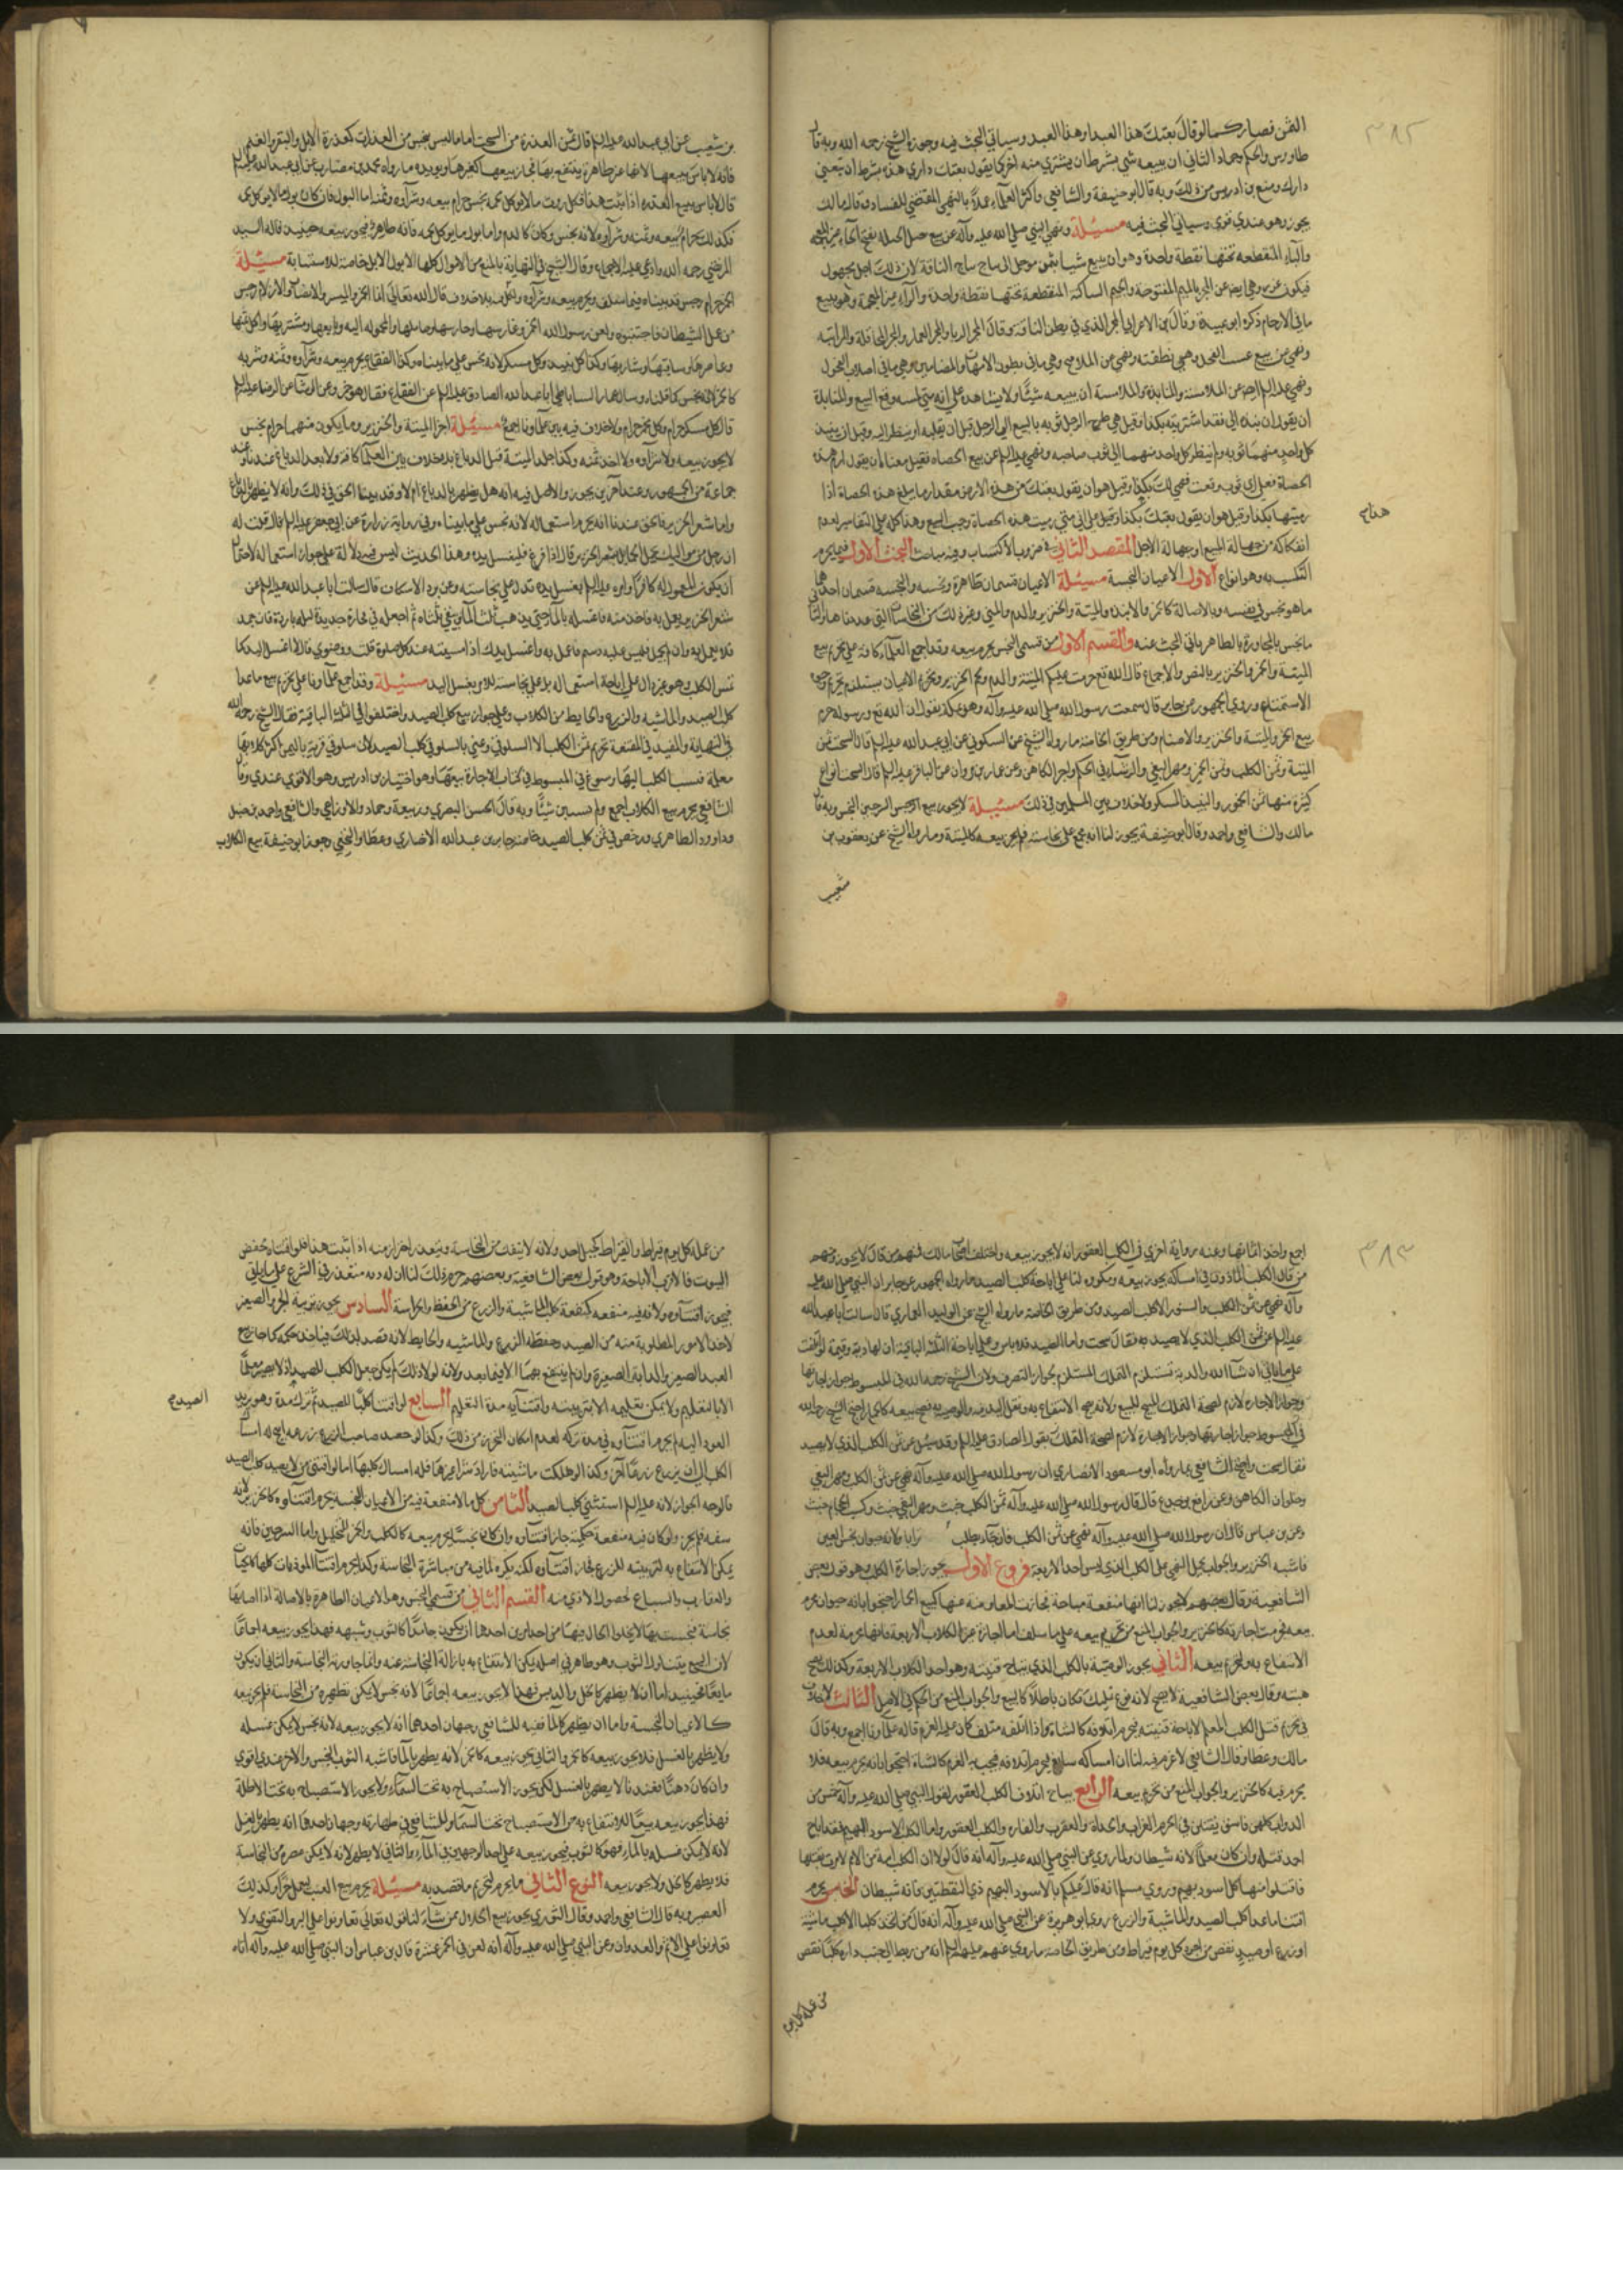 ٣٨٢
الثمن فصار كما لو قال بعتك هذا العبد او هذا العبد وسياتي البحث فيه وجوزه الشيخ رحمه الله وبه قال
طاوس والحكم وحماد الثاني ان يبيعه شي بشرط ان يشتري منه اخر كما يقول بعتك داري هذه بشرط ان تبيعني
دارك ومنع بن ادريس من ذلك وبه قال ابو حنيفة والشافعي واكثر العلماء عملا بالنهي المقتضي للفساد وقال مالك
يجوز وهو عندي قوي وسياتي البحث فيه مسئلة ونهى النبي صلى الله عليه وآله عن بيع حبل الحبلة بفتح الحاء غير المعجمه
والباء المنقطعه تحتها نقطة واحدة وهو ان يبيع شيا بثمن موجل الى نتاج نتاج الناقة لان ذلك اجل مجهول
فيكون غررا ونهى ايضا عن المجر بالميم المفتوحة والجيم الساكنة المنقطعة تحتها نقطة واحدة والراء غير المعجمة وهو بيع
ما في الارحام ذكره ابو عبيدة وقال بن الاعرابي المجر الذي في بطن الناقة وقال المجر الربا والمجر القمار والمجر المحاقلة والمزابنه
ونهى عن بيع عسب الفحل وهي نطفته ونهى عن الملاقيح وهي ما في بطون الامهات والمضامين وهي ما في اصلاب الفحول
ونهى عليه السلم ايضا عن الملامسة والمنابذة والملامسة ان يبيعه شيئا ولا يشاهده على انه متى لمسه وقع البيع والمنابذة
ان يقول ان نبذته الي فقد اشتريته بكذا وقيل هي طرح الرجل ثوبه بالبيع الى الرجل قبل ان يقلبه او ينظر اليه وقيل ان ينبذ
كل واحد منهما ثوبه ولم ينظر كل واحد منهما الى ثوب صاحبه ونهى عليه السلم عن بيع الحصاه فقيل معناه ان يقول ارم هذه
الحصاة فعلى اي ثوب وقعت فهي لك بكذا وقيل هو ان يقول بعتك من هذه الارض مقدار ما يبلغ هذه الحصاة اذا
رميتها بكذا وقيل هو ان يقول بعتك بكذا وقيل على اني متى رميت هذه الحصاة وجب البيع وهذا كله على التفاسير لعدم
هذا ح
انفكاكه من جهالة المبيع او جهالة الاجل المقصد الثاني في ضروب الاكتساب وفيه مباحث البحث الاول فيما يحرم
التكسب به وهو انواع الاول الاعيان النجسة مسئلة الاعيان قسمان طاهرة ونجسة والنجسه قسمان احدهما
ما هو نجس في نفسه وبالاصالة كالخمر والانبذه والميتة والخنزير والدم والمني وغير ذلك من النجاسات التي عددناها والثاني
ما نجس بالمجاورة بالطاهر ياتي البحث عنه والقسم الاول من قسمي النجس يحرم بيعه وقد اجمع العلماء كافة على تحريم بيع
الميتة والخمر والخنزير بالنص والاجماع قال الله تع حرمت عليكم الميتة والدم ولحم الخنزير وتحريم الاعيان يستلزم تحريم وجوه
الاستمتاع وروى الجمهور عن جابر قال سمعت رسول الله صلى الله عليه وآله وهو بمكة يقول ان الله تع ورسوله حرم
بيع الخمر والميتة والخنزير والاصنام ومن طريق الخاصة ما رواه الشيخ عن السكوني عن ابي عبد الله عليه السلم قال السحت ثمن
الميتة وثمن الكلب وثمن الخمر ومهر البغي والرشاء في الحكم واجر الكاهن وعن عمار بن مروان عن الباقر عليه السلم قال السحت انواع
كثيرة منها ثمن الخمور والنبيذ المسكر ولا خلاف بين المسلمين في ذلك مسئلة لا يجوز بيع السرجين النجس وبه قال
مالك والشافعي واحمد وقال ابو حنيفة يجوز لنا انه مجمع على نجاسته فلم يجز بيعه كالميتة وما رواه الشيخ عن يعقوب بن
شعيب
بن شعيب عن ابي عبد الله عليه السلم قال ثمن العذرة من السحت اما ما ليس بنجس من العذرات كعذرة الابل والبقر والغنم
فانه لا باس ببيعها لانها عين طاهرة ينتفع بها فجاز بيعها كغيرها ويويده ما رواه محمد بن مضارب عن ابي عبد الله عليه السلم
قال لا باس ببيع العذره اذا ثبت هذا فكل روث ما لا يوكل لحمه نجس حرام بيعه وشرآؤه وثمنه اما البول فان كان بول ما لا يوكل لحمه
فكذلك يحرام بيعه وثمنه وشرآؤه لانه نجس وكان كالدم واما بول ما يوكل لحمه فانه طاهر فيجوز بيعه حينيذ قاله السيد
المرتضى رحمه الله وادعى عليه الاجماع وقال الشيخ في النهاية بالمنع من الابوال كلها الا بول الابل خاصة للاستشفا به مسئلة
الخمر حرام نجس قد بيناه فيما سلف ويحرم بيعه وشرآؤه واكل ثمنه بلا خلاف قال الله تعالى انما الخمر والميسر والانصاب والازلام رجس
من عمل الشيطان فاجتنبوه ولعن رسول الله الخمر وغارسها وحارسها وحاملها والمحموله اليه وبايعها ومشتريها واكل ثمنها
وعاصرها وساقيها وشاربها وكذا كل نبيذ وكل مسكر لانه نجس على ما بيناه وكذا الفقاع يحرم بيعه وشرآؤه وثمنه وشربه
قال كل مسكر حرام وكل مخمر حرام ولا خلاف فيه بين علمآونا اجمع مسئلة اجزا الميتة والخنزير وما يكون منهما حرام نجس
لا يجوز بيعه ولا شرآؤه ولا اخذ ثمنه وكذا جلد الميتة قبل الدباغ بلا خلاف بين العلماء كافة ولا بعد الدباغ عندنا وعند
جماعة من الجمهور وعند آخرين يجوز والاصل فيه انه هل يطهر بالدباغ ام لا وقد بينا الحق في ذلك وانه لا يطهر بالدباغ
واما شعر الخنزير فالحق عندنا انه يحرم استعماله لانه نجس على ما بيناه وفي رواية زرارة عن ابي جعفر عليه السلم قال قلت له
ان رجل من مواليك يعمل الحمايل بشعر الخنزير قال اذا فرغ فليغسل يده وهذا الحديث ليس فيه دلالة على جواز استعماله لاحتمال
ان يكون المعمول له كافرا وامره عليه السلم بغسل يده تدل على نجاسته وعن برد الاسكاف قال سالت ابا عبد الله عليه السلم عن
شعر الخنزير يعمل به فاخذ منه فاغسله بالماء حتى يذهب ثلث الماء ويبقى ثلثاه ثم اجعله في فخارة جديدة ليلة باردة فان جمد
فلا يعمل به وان لم يجمد فليس عليه دسم فاعمل به واغسل يدك اذا مسسته عند كل صلوة قلت ووضوي قال لا اغسل اليد كما
تمس الكلب وهو غير دال على اباحة استعماله بل على نجاسته للامر بغسل اليد مسئلة وقد اجمع علمآونا على تحريم بيع ما عدا
كلب الصيد والماشيه والزرع والحايط من الكلاب وعلى جواز بيع كلب الصيد واختلفوا في الثلثة الباقية فقال الشيخ رحمه الله
في النهاية والمفيد في المقنعة تحريم ثمن الكلب الا السلوقي وعنى بالسلوقي كلب الصيد لان سلوق قرية باليمن اكثر كلابها
معلمة فنسب الكلب اليها وسوغ في المبسوط في كتاب الاجارة بيعها وهو اختيار بن ادريس وهو الاقوى عندي وقال
الشافعي يحرم بيع الكلاب اجمع ولم نفسد بين شيا وبه قال الحسن البصري وربيعة وحماد والاوزاعي والشافعي واحمد بن حنبل
وداوود الظاهري ورخص في ثمن كلب الصيد خاصة جابر بن عبد الله الانصاري وعطا والنخعي وجوز ابو حنيفة بيع الكلاب
٣٨٣
اجمع واخذ اثمانها وعنه رواية اخرى في الكلب العقور انه لا يجوز بيعه واختلف اصحاب مالك فمنهم من قال لا يجوز ومنهم
من قال الكلب الماذون في امساكه يجوز بيعه ويكره لنا على اباحة كلب الصيد ما رواه الجمهور عن جابر ان النبي صلى الله عليه
وآله نهى عن ثمن الكلب والسنور الا كلب الصيد ومن طريق الخاصة ما رواه الشيخ عن الوليد العماري قال سالت ابا عبد الله
عليه السلم عن ثمن الكلب الذي لا يصيد به فقال سحت واما الصيود فلا باس وعلى اباحة الثلثة الباقية ان لها دية وقيمة لو اتلفت
على ما ياتي ان شآ الله والدية تستلزم التملك المستلزم لجواز التصرف ولان الشيخ رحمه الله في المبسوط جواز اجارتها
وجواز الاجارة لازم لصحة التملك المبيح للبيع ولانه يصح الانتفاع به ونقل اليد فيه والوصية به فصح بيعه كالحمار احتج الشيخ رحمه الله
في المبسوط جواز اجارتها وجواز الاجارة لازم لصحة التملك بقول الصادق عليه السلم وقد سئل عن ثمن الكلب الذي لا يصيد
فقال سحت واحتج الشافعي بما رواه ابو مسعود الانصاري ان رسول الله صلى الله عليه وآله نهى عن ثمن الكلب ومهر البغي
وحلوان الكاهن وعن رافع بن خديج قال قال رسول الله صلى الله عليه وآله ثمن الكلب خبيث ومهر البغي خبيث وكسب الحجام خبيث
وعن بن عباس قال ان رسول الله صلى الله عليه وآله نهى عن ثمن الكلب فان جاء يطلب ترابا ولانه حيوان نجس العين
فاشبه الخنزير والجواب يحمل النهي على الكلب الذي ليس احد الاربعة فروع الاول يجوز اجارة الكلب وهو قول بعض
الشافعية وقال بعضهم لا يجوز لنا انها منفعة مباحة فجازت المعاوضة عنها كبيع الحمار احتجوا بانه حيوان يحرم
بيعه فحرمت اجارته كالخنزير والجواب المنع من تحريم بيعه على ما سلف اما اجارة غير الكلاب الاربعة فانها محرمة لعدم
الانتفاع به وتحريم بيعه الثاني يجوز الوصية بالكلب الذي يباح قنيته وهو احد الكلاب الاربعة وكذلك يصح
هبته وقال بعض الشافعية لا يصح لانه نوع تمليك فكان باطلا كالبيع والجواب المنع من الحكم في الاصل الثالث لا خلاف
في تحريم قتل الكلب المعلم لاباحة قنيته فحرم اتلافه كالشاة واذا اتلفه متلف كان عليه الغرم قاله علمآونا اجمع وبه قال
مالك وعطا وقال الشافعي لا غرم فيه لنا ان امساكه سايغ فحرم اتلافه فيجب به الغرم كالشاة احتجوا بانه يحرم بيعه فلا
يحرم فيه كالخنزير والجواب المنع من تحريم بيعه الرابع يباح اتلاف الكلب العقور لقول النبي صلى الله عليه وآله خمس من
الدواب كلهن فاسق يقتلن في الحرم الغراب والحداة والعقرب والفاره والكلب العقور واما الكلب الاسود البهيم فقد اباح
احمد قتله وان كان معلما لانه شيطان ولما روي عن النبي صلى الله عليه وآله انه قال لولا ان الكلب امة من الامم لامرت بقتلها
فاقتلوا منها كل اسود بهيم وروى مسلم انه قال عليكم بالاسود البهيم ذي النقطتين فانه شيطان الخامس يحرم
اقتنا ما عدا كلب الصيد والماشية والزرع روى ابو هريرة عن النبي صلى الله عليه وآله انه قال من اتخذ كلبا الا كلب ماشية
او زرع او صيد نقص من اجره كل يوم قيراط ومن طريق الخاصة ما روي عنهم عليهم السلم انه من ربط الى جنب داره كلبا نقص
من عمله كل يوم
من عمله كل يوم قيراط والقيراط كجبل احد ولانه لا ينفك من النجاسة ويتعذر احترازمنه اذا ثبت هذا فلو اقتناه لحفظ
البيوت فالاقرب الاباحة وهو قول بعض الشافعية وبعضهم حرم ذلك لنا ان له دية متقدر في الشرع على ما ياتي
فيجوز اقتنآؤه ولانه فيه منفعة كمنفعة كلب الماشية والزرع من الحفظ والحراسة السادس يجوز تربية الجرو الصغير
لاحد الامور المطلوبة منه من الصيد وحفظه الزرع والماشيه والحايط لانه قصد لذلك فياخذ حكمه كما جاز بيع
العبد الصغير والدابة الصغيرة وان لم ينتفع بهما الا فيما بعد ولانه لولا ذلك لم يمكن جعل الكلب للصيد اذ لا يصير معلما
الا بالتعليم ولا يمكن تعليمه الا بتربيته واقتنآيه مدة التعليم السابع لو اقتنا كلبا للصيد ثم ترك مدة وهو يريد
الصيد ح
العود اليه لم يحرم اقتنآؤه في مدة تركه لعدم امكان التحرز من ذلك وكذا لو حصد صاحب الزرع زرعه ابيح له امساك
الكلب الى ان يزرع زرعا آخر وكذا لو هلكت ماشيته فاراد شرا غيرها فله امساك كلبها اما لو اقتنى من لا يصيد كلب الصيد
فالوجه الجواز لانه عليه السلم استثنى كلب الصيد الثامن كل ما لا منفعة فيه من الاعيان النجسة يحرم اقتناؤه كالخنزير لانه
سفه فلم يجز ولو كان فيه منفعة حكمية جاز اقتناؤه وان كان نجسا يحرم بيعه كالكلب والخمر للتخليل واما السرجين فانه
يمكن الانتفاع به لتربيته للزرع فجاز اقتنآؤه لكنه يكره لما فيه من مباشرة النجاسة وكذا يحرم اقتنآ الموذيات كلها كالحيات
والعقارب والسباع لحصول الاذى منه القسم الثاني من قسمي النجس وهو الاعيان الطاهرة بالاصالة اذا اصابها
نجاسة فنجست بها لا يخلوا الحال فيها من احد امرين احدهما ان يكون جامدا كالثوب وشبهه فهذا يجوز بيعه اجماعا
لان البيع يتناول الثوب وهو طاهر في اصله يمكن الانتفاع به بازالة النجاسة عنه وانما جاورته النجاسة والثاني ان يكون
مايعا فحينيذ اما ان لا يطهر كالخل والدبس فهذا لا يجوز بيعه اجماعا لانه نجس لا يمكن تطهيره من النجاسة فلم يجز بيعه
كالاعيان النجسة واما ان يطهر كالماء ففيه للشافعي وجهان احدهما انه لا يجوز بيعه لانه نجس لا يمكن غسله
ولا يطهر بالغسل فلا يجوز بيعه كالخمر والثاني يجوز بيعه كالخمر لانه يطهر بالماء فاشبه الثوب النجس والاخر عندي اقوى
وان كان دهنا فعندنا لا يطهر بالغسل لكن يجوز الاستصباح به تحت السماء ولا يجوز الاستصباح به تحت الاظلة
فهذا يجوز بيعه بيعا للانتفاع به من الاستصباح تحت السماء وللشافعي في طهارته وجهان احدهما انه يطهر بالغسل
لانه لا يمكن غسله بالماء فهو كالثوب فيجوز بيعه على احد الوجهين في الماء والثاني لا يطهر لانه لا يمكن عصره من النجاسة
فلا يطهر كالخل ولا يجوز بيعه النوع الثاني ما يحرم لتحريم ما قصد به مسئلة يحرم بيع العنب ليعمل خمرا وكذلك
العصير وبه قال الشافعي واحمد وقال الثوري يجوز بيع الحلال ممن شآء لنا قوله تعالى تعاونوا على البر والتقوى ولا
تعاونوا على الاثم والعدوان وعن النبي صلى الله عليه وآله انه لعن في الخمر عشرة قال بن عباس ان النبي صلى الله عليه وآله اتاه